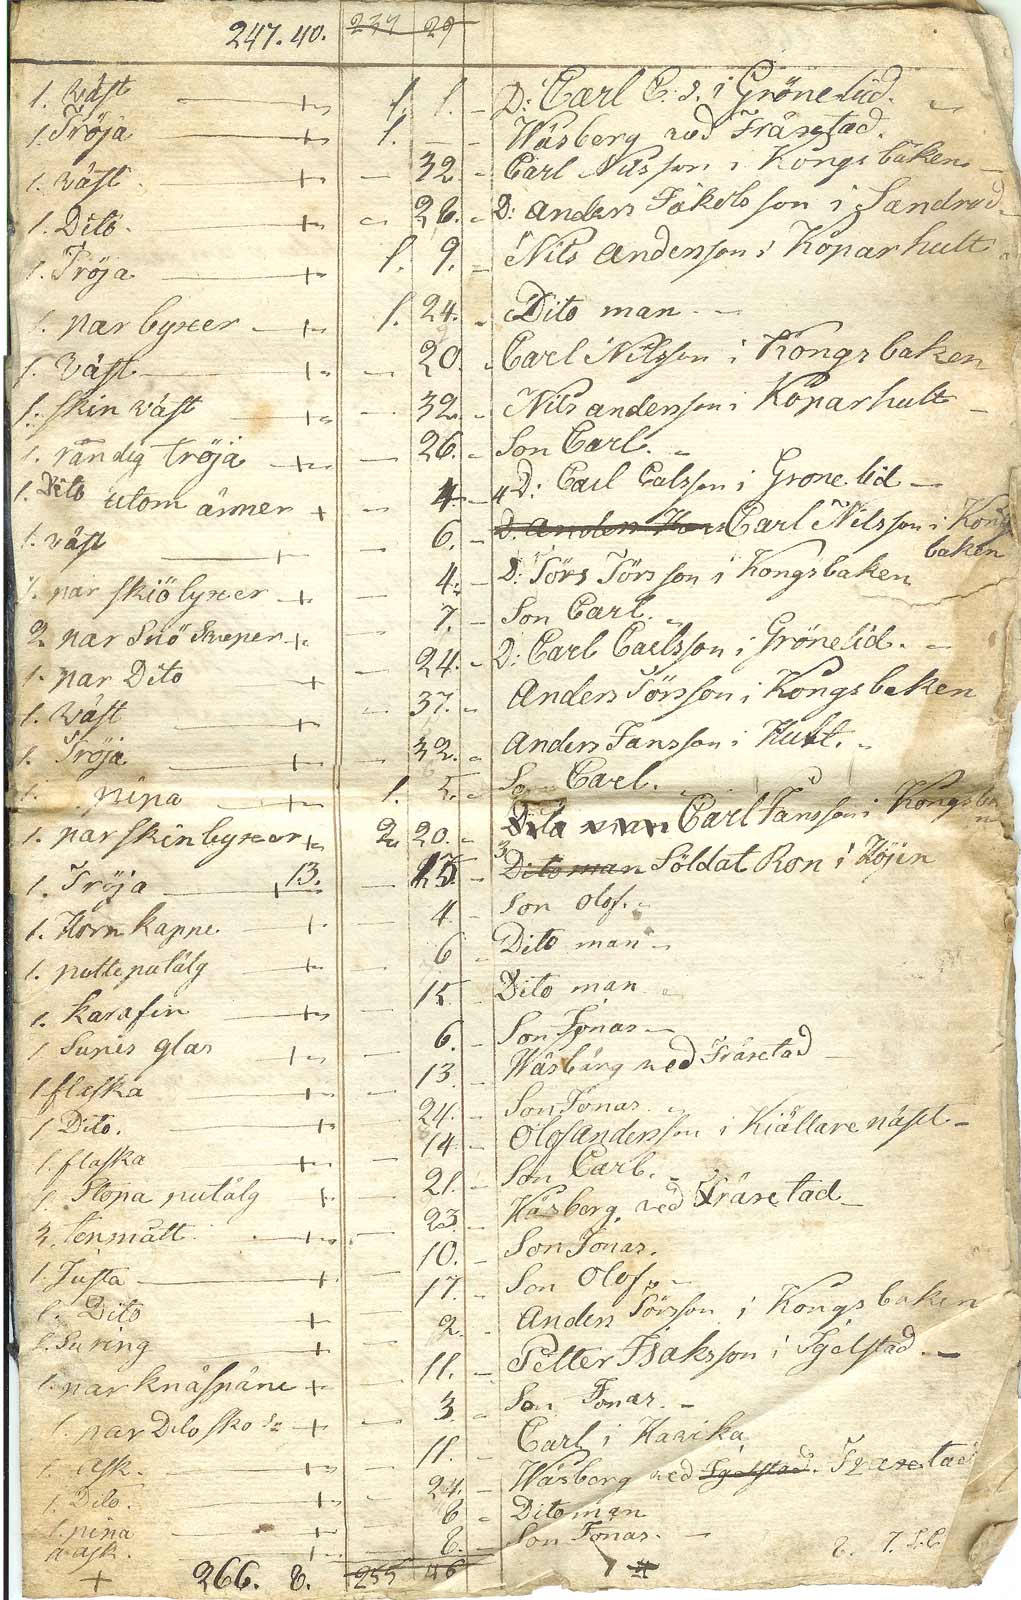 247. 40. 234 29
1. Väst + 1. 1. - D: Carl C: s. i Grönelid.
1. Tröja + 1. - Wäsberg ved Fråsetad.
1. väst + - 32 - Carl Nilsson i Kongsbaken
1. Dito. + - 26. - D: Anders Jakobsson i Sandrud
1. Tröja + 1. 9. - Nils Andersson i Koparhult
1. par byxer + 1. 24. - Dito man -
1. Väst + - 20. - Carl Nilsson i Kongsbaken
1. skin väst + - 32 - Nils andersson i Koparhult -
1. randig tröja + - 26. - Son Carl. -
1. Dito utom ärmer + - 4 - D: Carl Calsson i Grone lid -
1. väst + - 6. - Carl Nilsson i Kongsbaken
1. par skiöbyxer + - 4. - D: Törs Törsson i Kongsbaken
2 par Snö Skreper + - 7. - Son Carl. -
1. par Dito + - 24. - D: Carl Caelsson i Grönelid. -
1. Väst + - 37. - Anders Törsson i Kongsbaken
1. Tröja + - 32. - Anders Jansson i Hult. -
1. pipa + 1. 5. - Son Carl.
1. par skinbyxer + 2 20. - Carl Jansson i Kongsba
1. Tröja 13. - 15 - Dito man Söldat Ron i Höjen
1. Horn kappe. + - 4 - Son Olof. -
1. putte putälg + - 6 - Dito man -
1. Karafin + - 15 - Dito man
1 Supes glas + - 6. - Son Jonas -
1 flaska + - 13. - Wäsbärg ved Fråsetad -
1 Dito. + - 24. - Son Jonas. -
1. flaska + - 14 - Olof Andersson i Kiällarenäset -
1. Stopa putälg + - 21. - Son Carl. -
3. tenmått + - 23. - Wäsberg. ved Fråsetad
1. Justa + - 10. - Son Jonas.
1. Dito + - 17. - Son Olof. -
1. Su ring + - 2. - Anders Törsson i Kongsbaken
1. par knäspäne + - 11. - Petter Isaksson i Igelstad. -
1. par Dito sko + - 3. - Son Jonas. -
1. ask. + - 11. - Carl i Harika
1. Dito. + - 24. - Wäsberg ved Igelstad. Frasetad
1. pipa + - 8 - Dito man
1 ask. + - 8. - Son Jonas. -
+ 266. 8. 255 46